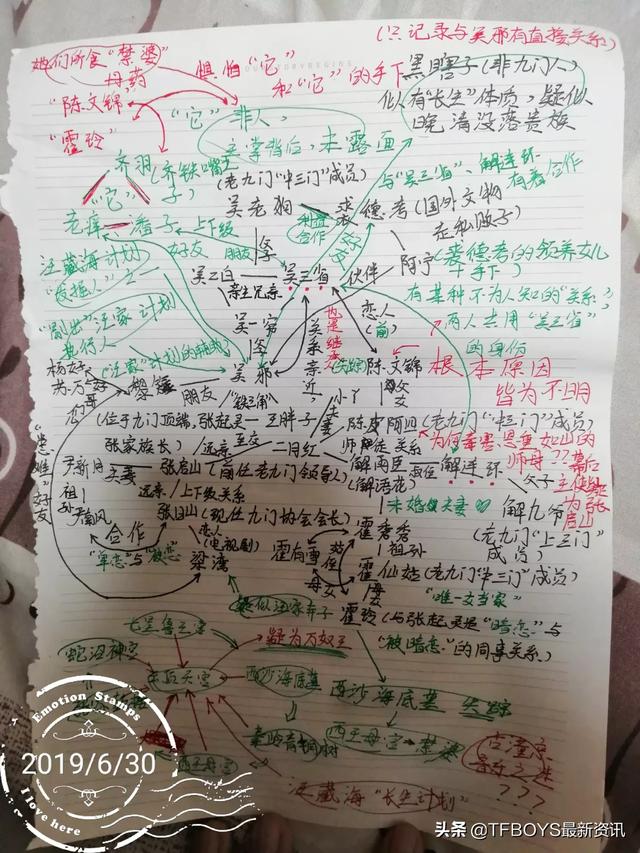 (只记录与吴邪有直接关系)
她们所食"禁婆"
丹药
惧怕"它"
和"它"的手下
黑瞎子(非九门人)
"陈文锦"
"霍玲"
"它"
非人,
主掌背后,未露面
似有"长生"体质,疑似
晚清没落贵族
齐羽
(齐铁嘴
子)
(老九门"中三门"成员)
与"吴三省"、解连环
有着合作
"它"
吴老狗
裘德考(国外文物
走私贩子)
老痒
潘子
上下级
利益
合作
好友
朋友
父子
汪藏海计划
吴二白
亲生兄弟
吴三省
伙伴
阿宁
(裘德考的领养女儿
+手下)
有某种不为人知的"关系"
两人共用"吴三省"
的身份
"汪家"计划
执行人
吴一穷
父子
关系亲近
恋人
(前)
(失踪)
陈文锦
根本原因
皆为不明
杨好
苏万
黎簇
朋友
吴邪
"铁三角"
小丫
父女
(位于九门顶端,张起灵
王胖子
陈皮阿四(老九门"中三门"成员)
张家族长)
远亲
至友
二月红
师徒关系
为何毒害恩重如山的
师母??
幕后
主使疑
为张
启山
尹新月
夫妻
张启山(前任老九门领导人)
解雨臣
(解语花)
叔侄
解连环
父子
"患难"好友
祖孙
尹南风
远亲/上下级关系
张日山(现任九门协会会长)
未婚似夫妻
解九爷
(老九门"上三门"
成员)
合作
"单恋"与"被恋"
恋人
(电视剧)
梁湾
霍秀秀
祖孙
霍有雪
母女
霍仙姑(老九门"中三门"成员)
"唯一女当家"
母女
疑似汪家弃子
霍玲(与张起灵是"暗恋"与
"被暗恋"的同事关系)
七星鲁王宫
疑为万奴王
蛇沼神宫
云顶天宫
西沙海底墓
西沙海底墓 失踪
秦岭青铜树
西王母宫→禁婆
西王母宫
汪藏海"长生计划"
???
Emotion Stamps
2019/6/30
I love here
头条 @TFBOYS最新资讯